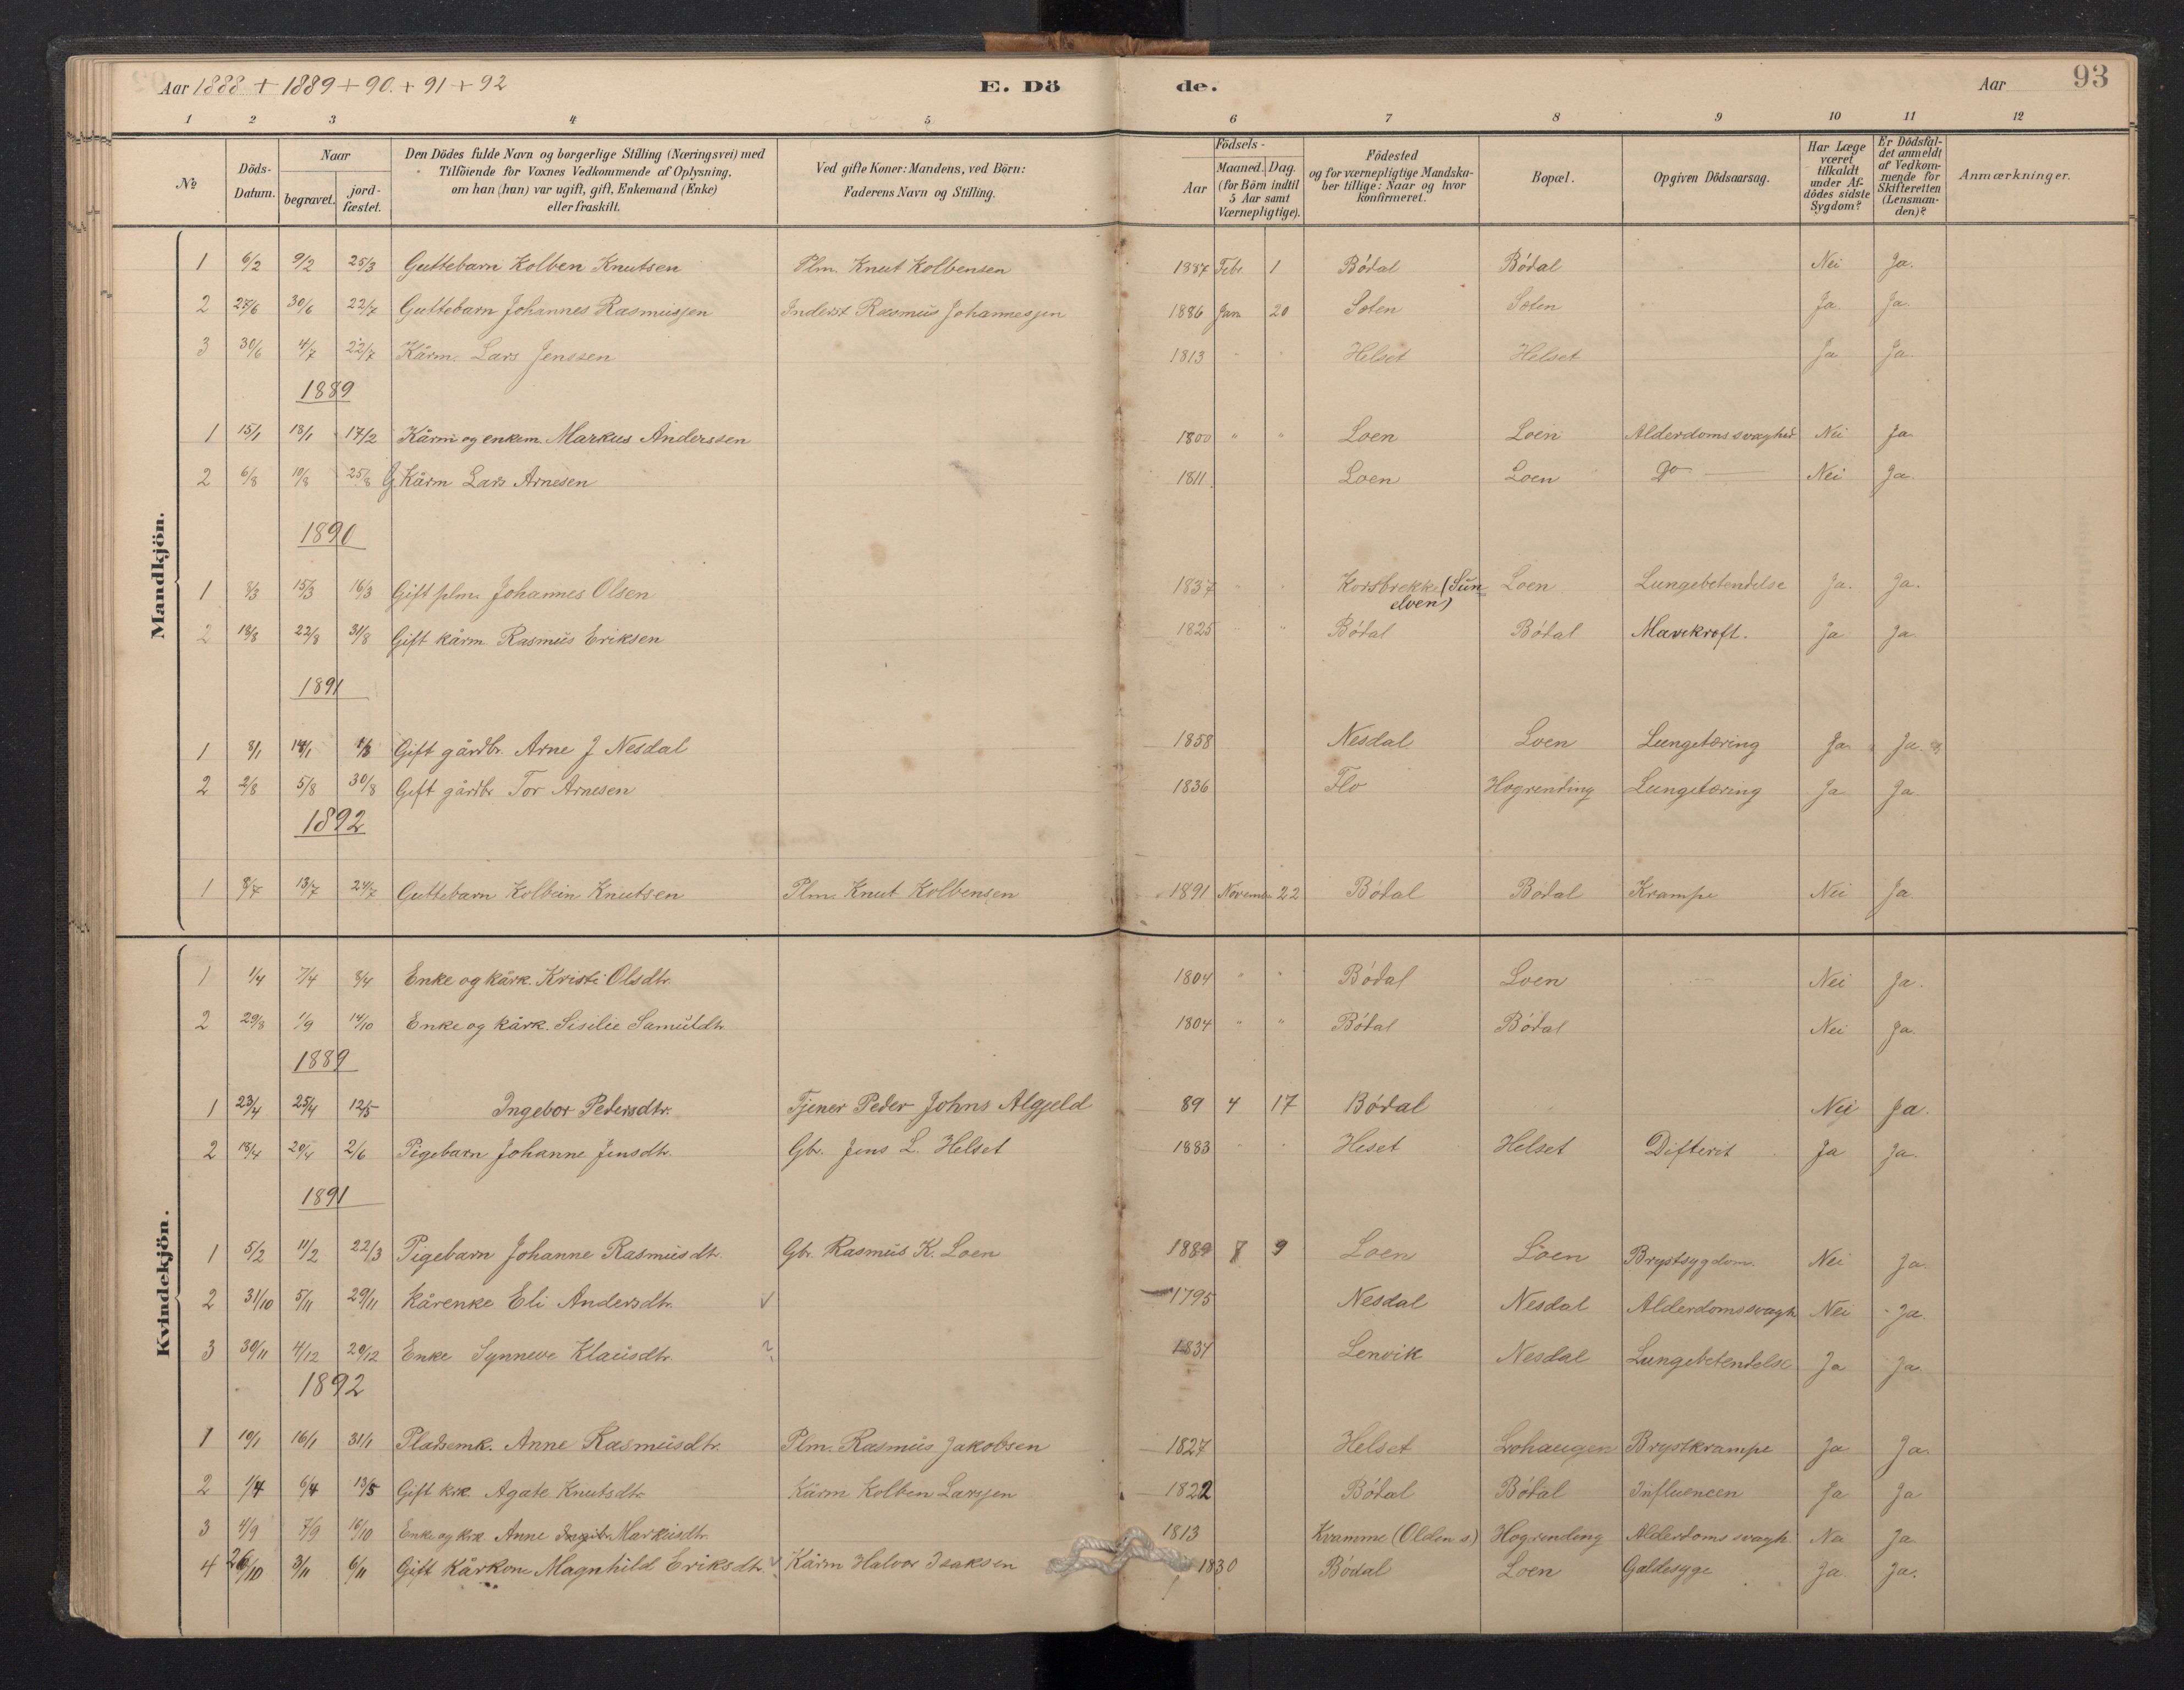 Aar 1888 + 1889 + 90. + 91 + 92 E. Dö de. Aar 93
1 2 3 4 5 6 7 8 9 10 11 12
№ Döds-Datum. Naar begravet. jord-fæstet. Den Dödes fulde Navn og borgerlige Stilling (Næringsvei) med Tilföiende for Voxnes Vedkommende af Oplysning, om han (hun) var ugift, gift, Enkemand (Enke) eller fraskilt. Ved gifte Koner: Mandens, ved Börn: Faderens Navn og Stilling. Födsels- Aar Maaned. Dag. (for Börn indtil 5 Aar samt Værnepligtige). Födested og for værnepligtige Mandskaber tillige: Naar og hvor konfirmeret. Bopæl. Opgiven Dödsaarsag. Har Læge været tilkaldt under Afdödes sidste Sygdom? Er Dödsfaldet anmeldt af Vedkommende for Skifteretten (Lensmanden)? Anmærkninger.
Mandkjön.
1 6/2 9/2 25/3 Guttebarn Kolben Knutsen Plm. Knut Kolbensen 1887 Febr. 1 Bódal Bódal Nei Ja.
2 27/6 30/6 22/7 Guttebarn Johannes Rasmussen Inderst Rasmus Johannessen 1886 Jan 20 Sæten Sæten Ja. Ja.
3 30/6 4/7 22/7 Kårm. Lars Jenssen 1813 " " Helset Helset Ja Ja.
1889
1 15/1 18/1 17/2 Kårm og enkem. Markus Anderssen 1800 " " Loen Loen Alderdomssvaghed Nei Ja
2 6/8 10/8 25/8 G Kårm Lars Arnesen 1811 Loen Loen Do Nei Ja.
1890
1 8/3 15/3 16/3 Gift plm. Johannes Olsen 1837 " " Korsbrekke (Sunelven) Loen Lungebetendelse Ja. Ja.
2 18/8 22/8 31/8 Gift kårm. Rasmus Eriksen 1825 " " Bódal Bódal Mavekræft. Ja Ja
1891
1 8/1 14/1 1/3 Gift gårdbr. Arne J Nesdal 1858 Nesdal Loen Lungetæring Ja Ja
2 2/8 5/8 30/8 Gift gårdbr Tor Arnesen 1836 Flo Hogrending Lungetæring Ja Ja
1892
1 8/7 13/7 24/7 Guttebarn Kolbein Knutsen Plm. Knut Kolbensen 1891 November 22 Bódal Bódal Krampe Nei Ja
Kvindekjön.
1 1/4 7/4 8/4 Enke og kårk. Kristi Olsdtr. 1804 " " Bódal Loen Nei Ja.
2 29/8 1/9 14/10 Enke og kårk. Sisilie Samuldtr. 1804 " " Bódal Bódal Nei Ja.
1889
1 23/4 25/4 12/5 Ingebor Pedersdtr. Tjener Peder Johns Algjeld 89 4 17 Bódal Nei Ja.
2 18/4 20/4 2/6 Pigebarn Johanne Jensdtr. Gbr. Jens L. Helset 1883 " " Heset Helset Difterit Ja Ja.
1891
1 5/2 11/2 22/3 Pigebarn Johanne Rasmusdtr. Gbr. Rasmus K. Loen 1889 8 9 Loen Loen Brystsygdom. Nei Ja.
2 31/10 5/11 29/11 Kårenke Eli Andersdtr. v 1795 Nesdal Nesdal Alderdomssvagh Nei Ja.
3 30/11 4/12 20/12 Enke Synneve Klausdtr. ? 1834 Lenvik Nesdal Lungebetendelse Ja Ja
1892
1 10/1 16/1 31/1 Pladsemk. Anne Rasmusdtr. Plm. Rasmus Jakobsen 1827 Helset Lohaugen Brystkrampe Ja Ja.
2 1/4 6/4 13/5 Gift krk. Agate Knutsdtr. Kårm Kolben Larssen 1822 Bódal Bódal Influencen Ja Ja
3 4/9 7/9 16/10 Enke og krk. Anne Markusdtr. 1813 Kvamme (Olden s) Hogrending Alderdoms svagh. Nei Ja
4 26/10 3/11 6/11 Gift Kårkone Magnhild Eriksdtr. v Kårm Halvor Isaksen 1830 Bódal Loen Galdesyge Ja Ja.